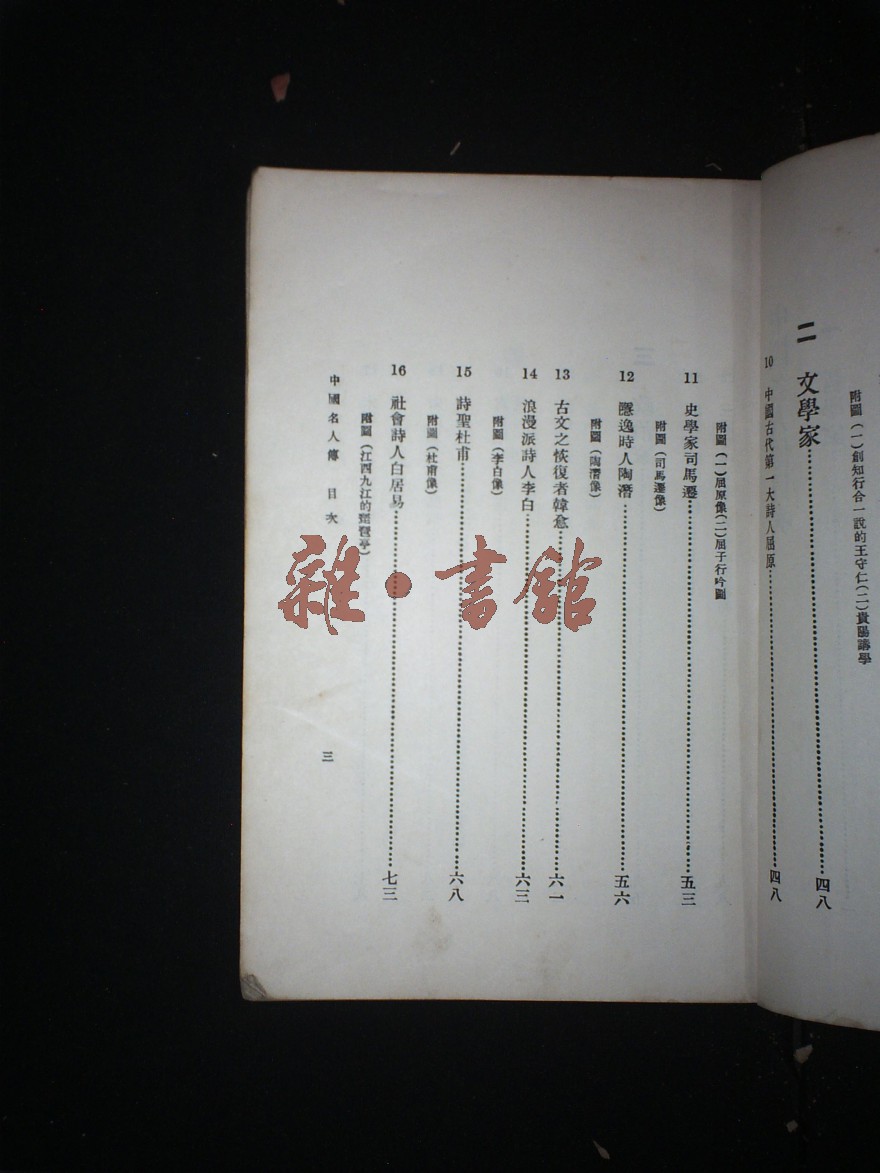 附圖(一)創知行合一說的王守仁(二)貴陽講學
二 文學家……四八
10 中國古代第一大詩人屈原……四八
附圖(一)屈原像(二)屈子行吟圖
11 史學家司馬遷……五三
附圖(司馬遷像)
12 隱逸時人陶潛……五六
附圖(陶潛像)
13 古文之恢復者韓愈……六一
14 浪漫派詩人李白……六三
附圖(李白像)
15 詩聖杜甫……六八
附圖(杜甫像)
16 社會詩人白居易……七三
附圖(江西九江的琵琶亭)
中國名人傳 目次 三
雜·書館